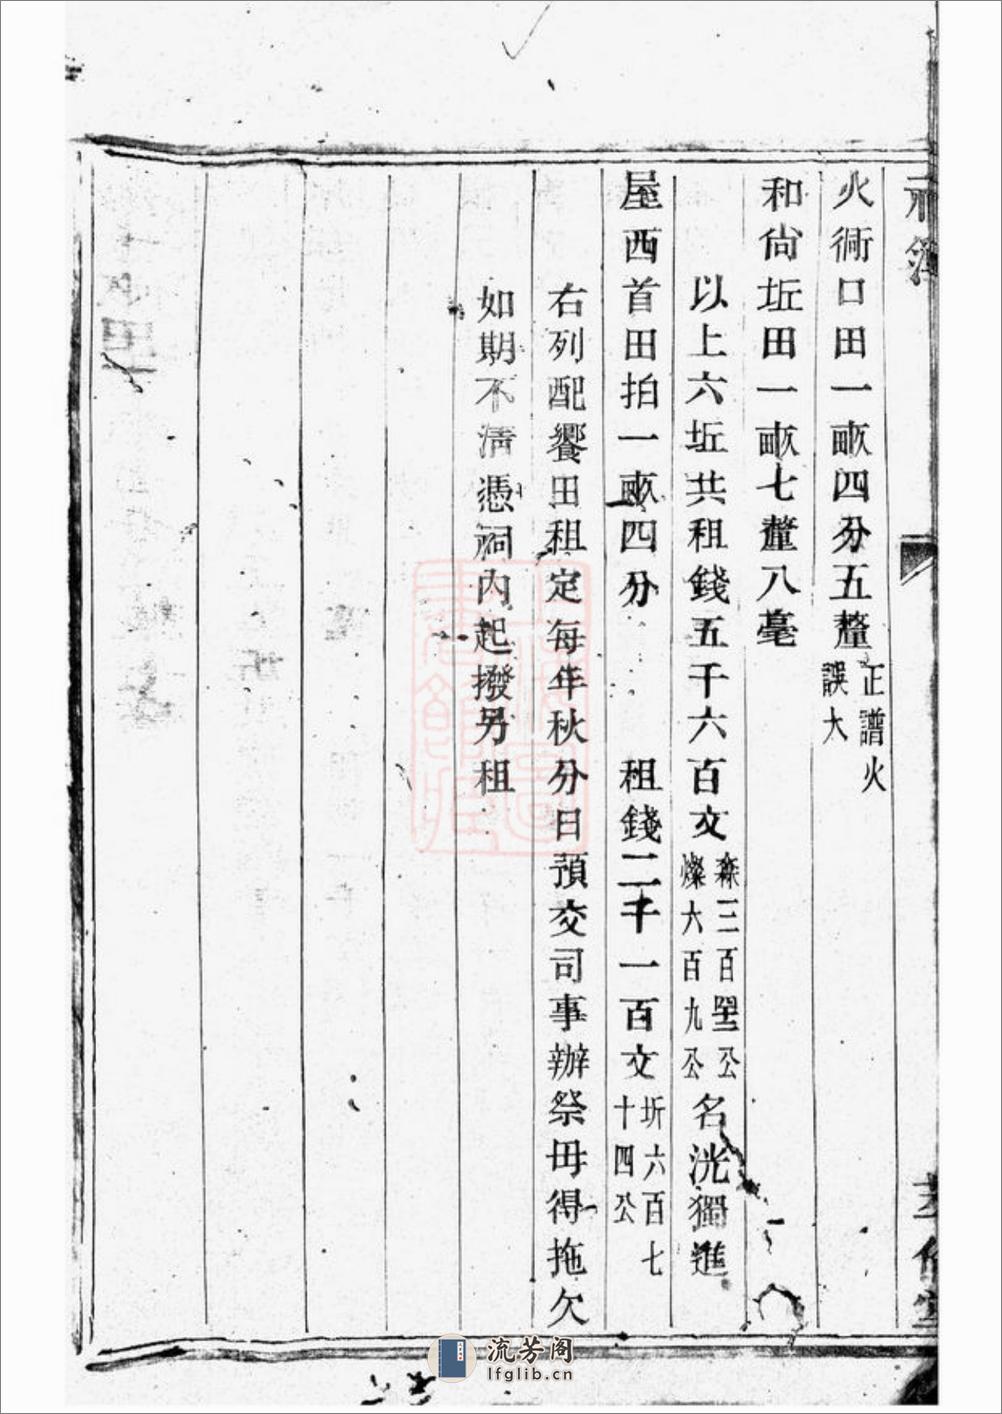 火衕口田一畝四分五釐正譜火誤大
和尙坵田一畝七釐八毫
以上六坵共租錢五千六百文森三百公燦六百九公名洸獨進
屋西首田拍一畝四分 租錢二千一百文圻六百七十四公
右列配饗田租定每年秋分日預交司事辦祭毋得拖欠
如期不淸憑祠內起撥另租
流芳阁
lfglib.cn